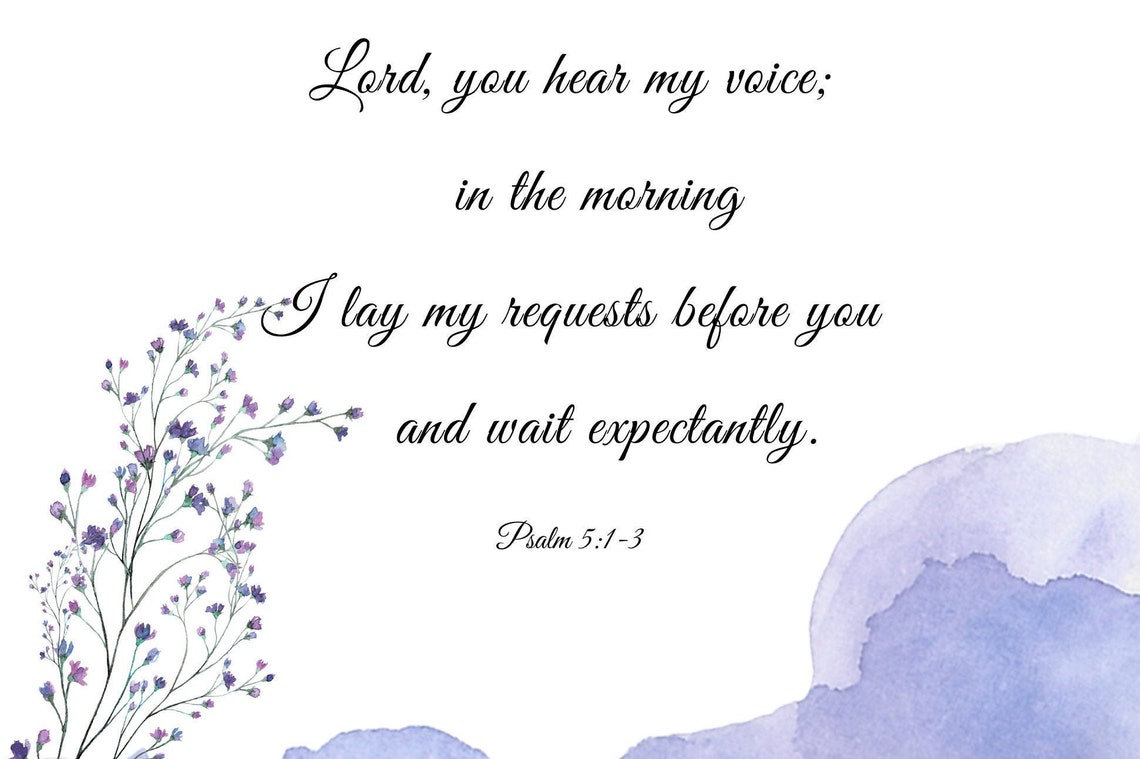 Lord, you hear my voice;
in the morning
I lay my requests before you
and wait expectantly.
Psalm 5:1-3